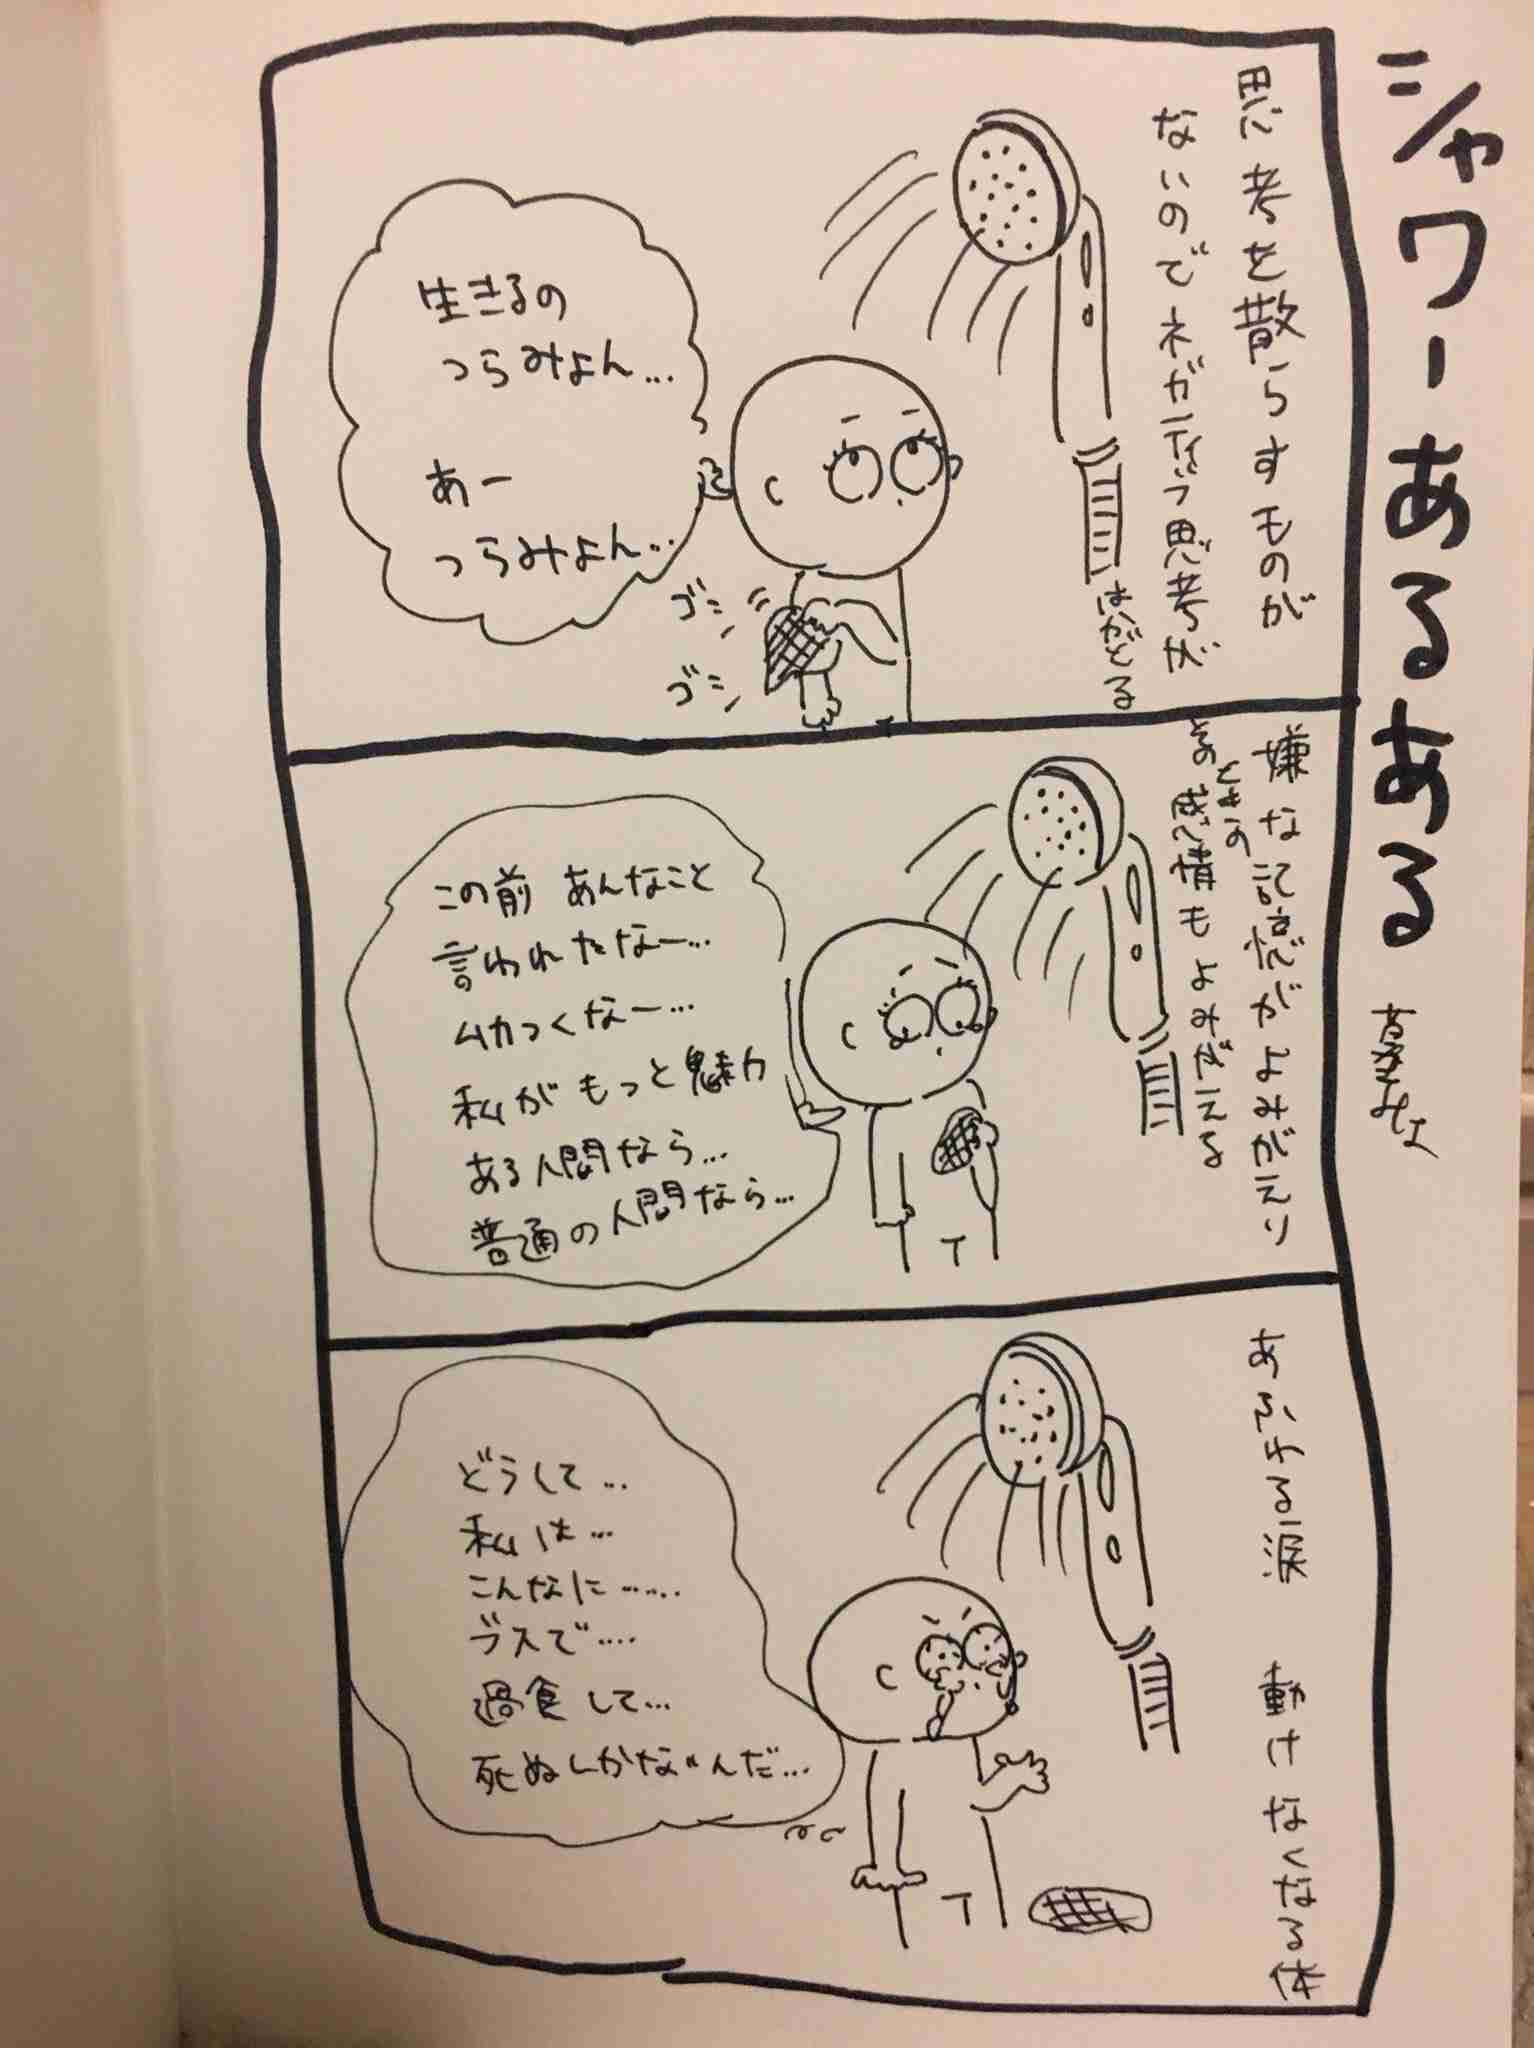 シャワーあるある
思考を散らすものが
ないのでネガティブ思考が
はかどる
生きるの
つらみよん…
あー
つらみよん…
ゴシ
ゴシ
嫌な記憶がよみがえり
そのときの
感情もよみがえる
この前 あんなこと
言われたなー…
ムカつくなー…
私がもっと魅力
ある人間なら…
普通の人間なら…
あふれる涙 動けなくなる体
どうして…
私は…
こんなに……
ブスで….
過食して…
死ぬしかないんだ…